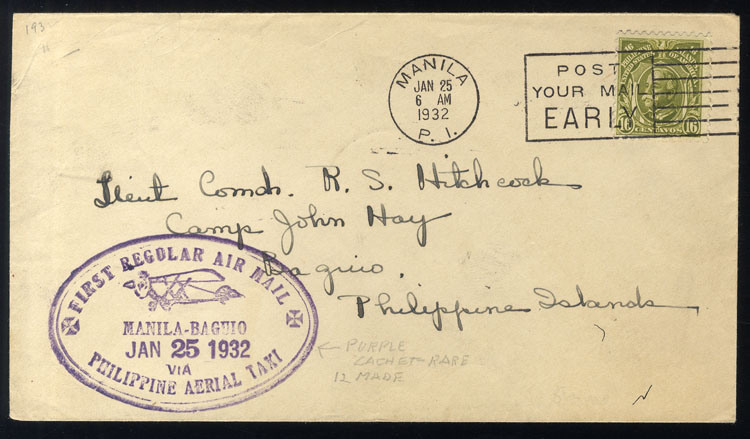 193
MANILA
JAN 25
6 AM
1932
P. I.
POST
YOUR MAIL
EARLY
16 16
PHILIPPINE ISLANDS
UNITED STATES OF AMERICA
16 CENTAVOS 16
Lieut Comdr. R. S. Hitchcock
Camp John Hay
Baguio.
Philippine Islands
FIRST REGULAR AIR MAIL
MANILA-BAGUIO
JAN 25 1932
VIA
PHILIPPINE AERIAL TAXI
PURPLE
CACHET = RARE
12 MADE